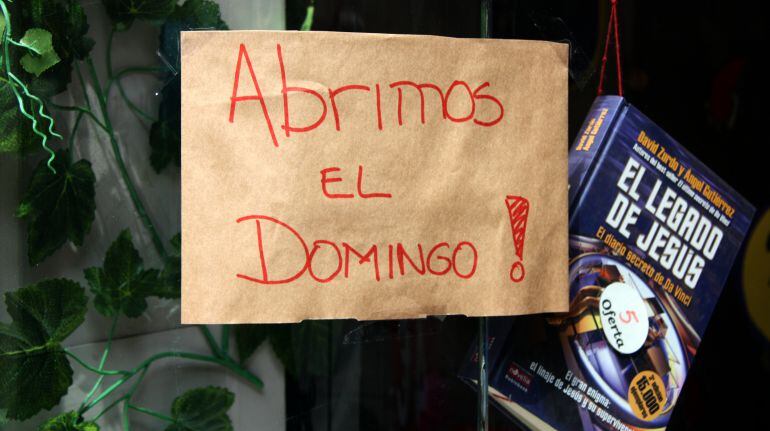 Abrimos
EL
DOMINGO!
David Zurdo y Ángel Gutiérrez
EL LEGADO
DE JESÚS
El diario secreto de Da Vinci
5
Oferta
15.000
El gran enigma:
el linaje de Jesús y su